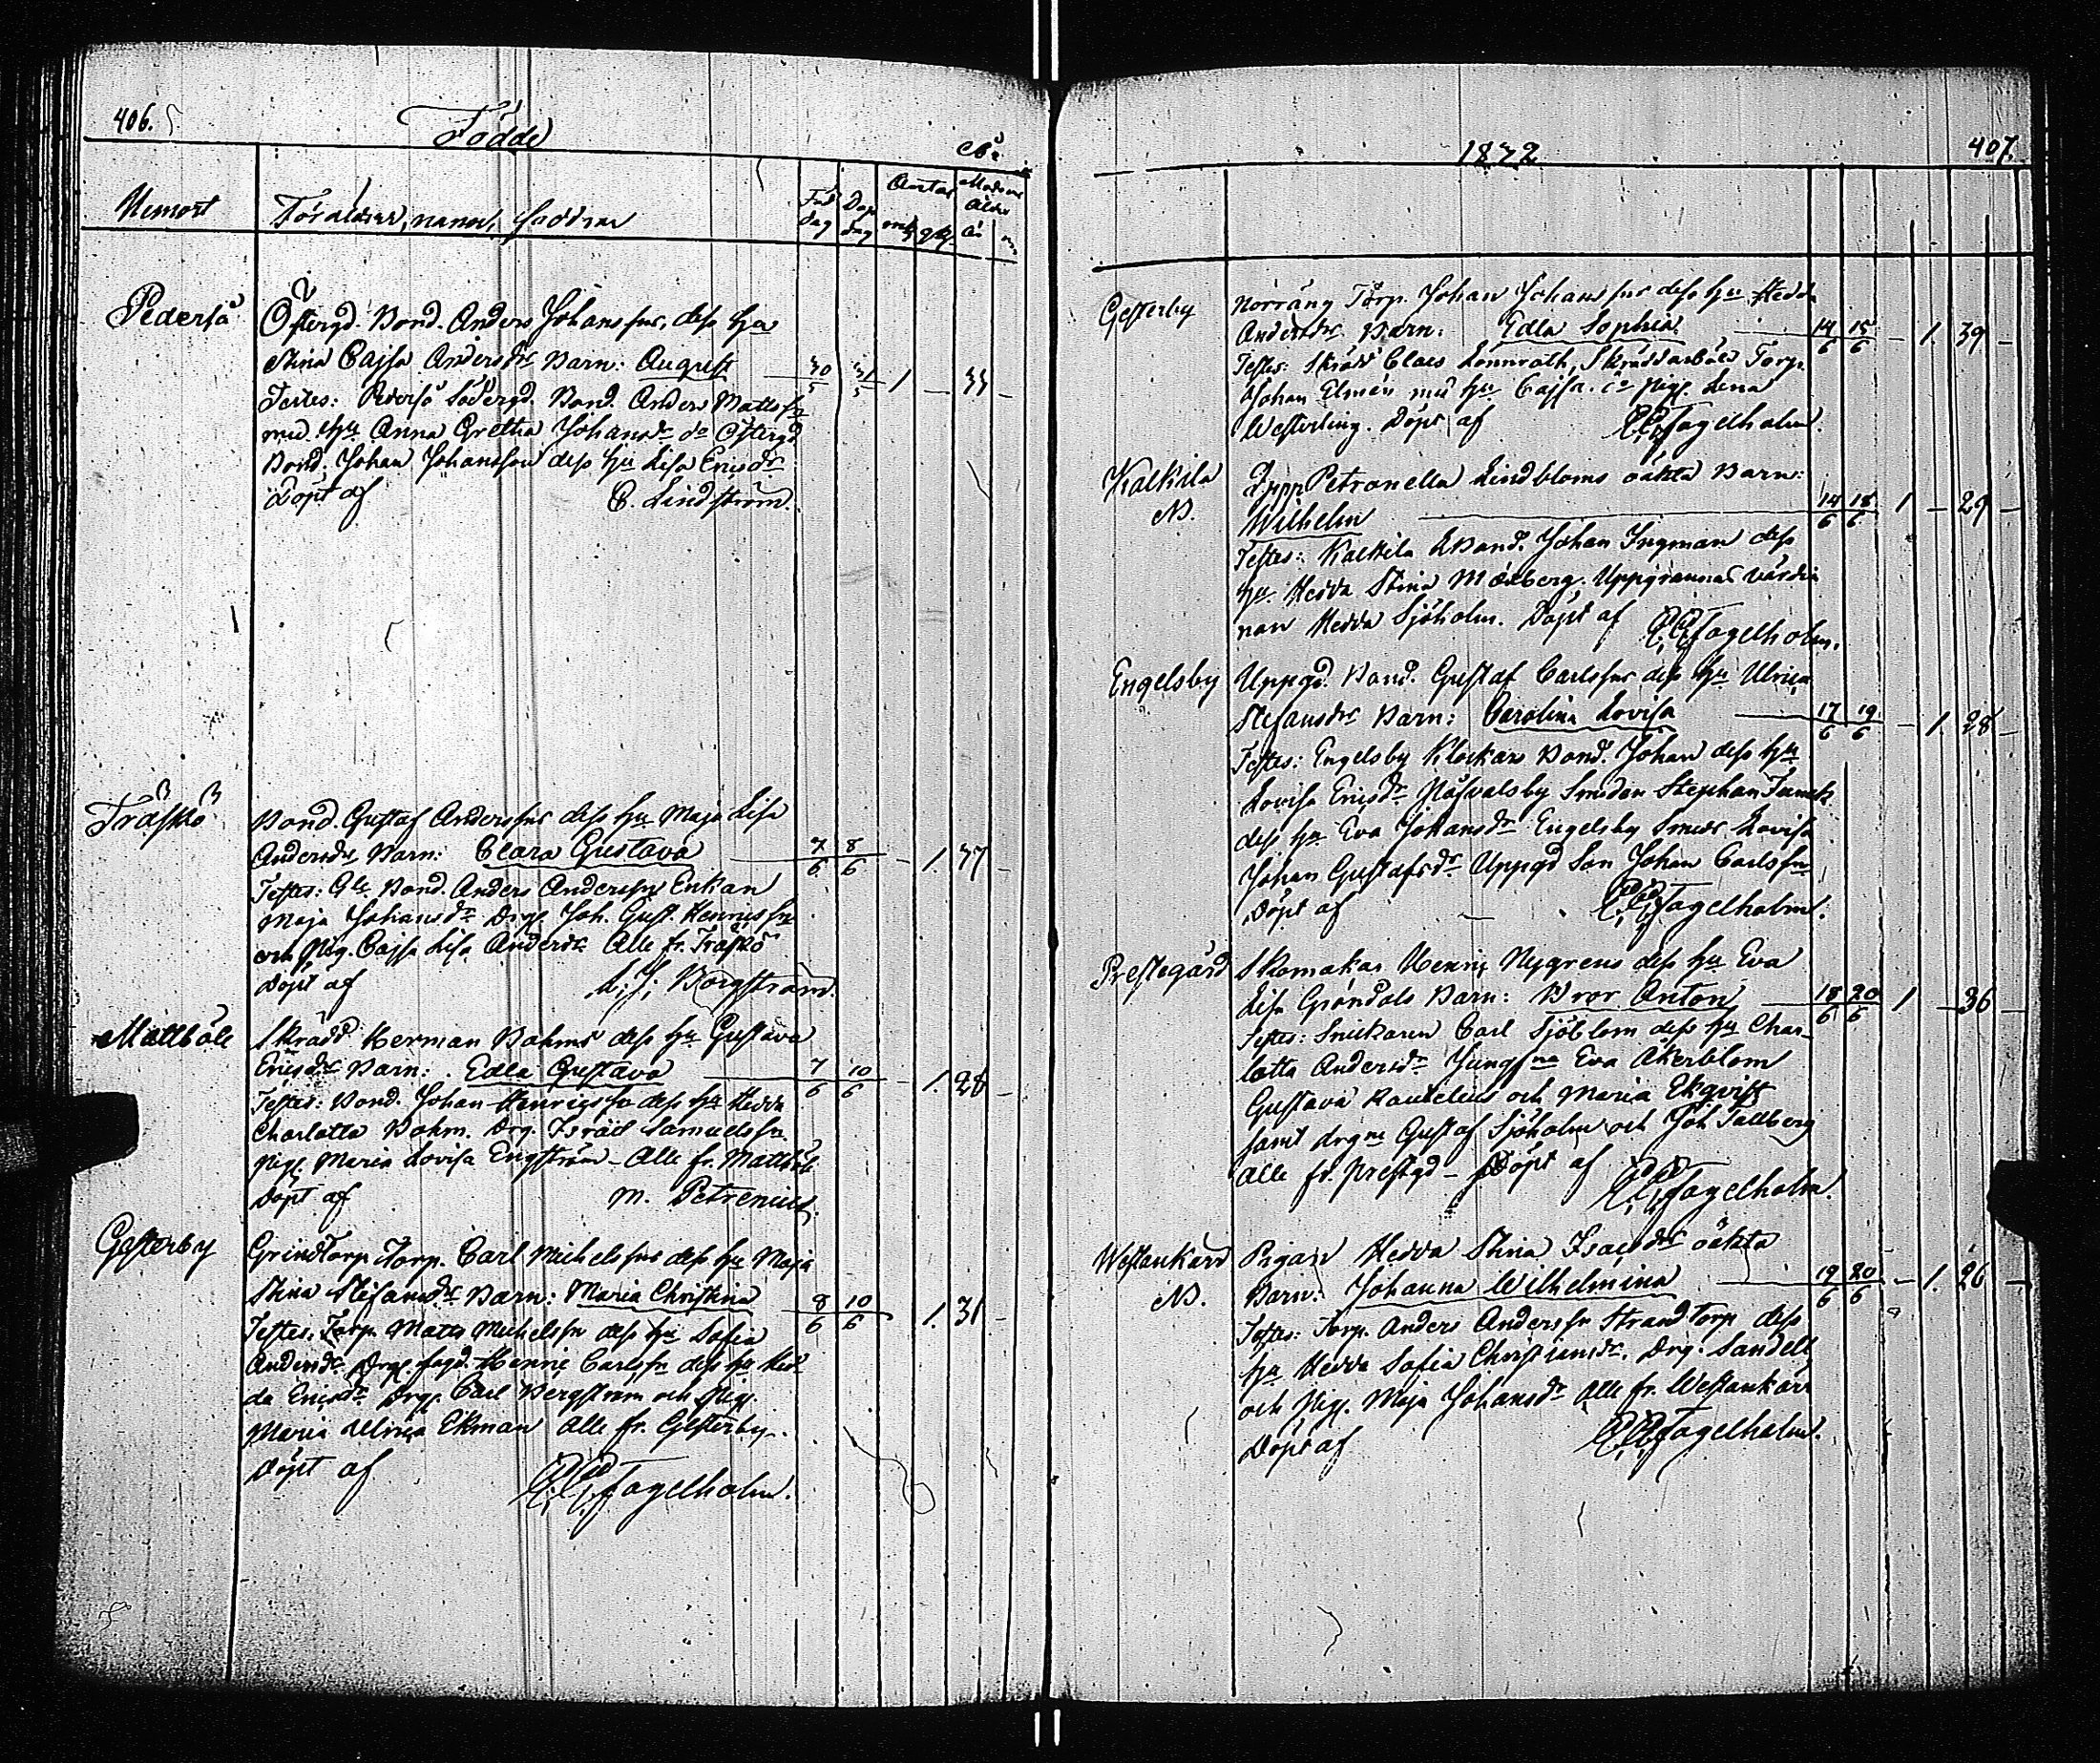 406.
Födde
År
Hemort
Föräldrar, namn, faddrar
Föd dag
Dop dag
Antal
mk qk
Modrens ålder
år m
Pederså
Östergd. Bond. Anders Johanssns, dess hu
Stina Cajsa Andersdrs Barn: August 30/5 31/5 1 – 33 –
Testes: Pedersö Södergd. Bond. Anders Mattssn
med hu Anna Gretha Johansdr do Östergd
Bond. Johan Johansson dess hu Lisa Ericsdr
Döpt af C. Lindström.
Träskö
Bond. Gustaf Anderssns dess hu Maja Lisa
Andersdrs Barn: Clara Gustava 7/6 8/6 – 1. 37 –
Testes: Gle Bond. Anders Anderssn Enkan
Maja Johansdr Drg. Joh. Gust. Henricssn
och Pig. Cajsa Lisa Andersdr Alle fr. Träskö
Döpt af L. J. Borgström.
Mattböle
Skrädd. Herman Bohms dess hu Gustava
Ericsdrs Barn: Edla Gustava 7/6 10/6 – 1. 28 –
Testes: Bond. Johan Henricssn dess hu Hedda
Charlotta Bohm. Drg. Israel Samuelssn.
Pig. Maria Lovisa Engström – Alle fr. Mattböle
Döpt af M. Petrenius.
Gesterby
Grindtorp Torp. Carl Michelssns dess hu Maja
Stina Stefansdrs Barn: Maria Christina 8/6 10/6 1. 31 –
Testes: Torp. Matts Michelssn dess hu Sofia
Andersdr. Drg. Henric Carlssn dess hu Hed
da Ericsdr Drg. Carl Bergström och Pig.
Maria Ulrica Ekman alle fr. Gesterby.
Döpt af C. C. Fagelholm.
1872
407.
Gesterby
Norräng Torp. Johan Johanssns dess hu Hedda
Andersdrs Barn: Edla Sophia 14/6 15/6 – 1. 39 –
Testes: Skrädd Claes Lönnroth, Skräddarböle Torp.
Johan Elmén med hu Cajsa. Pig. Lena
Westerling. Döpt af C. C. Fagelholm.
Kalkila
N.
Petronella Lindbloms oäkta Barn:
Wilhelm 14/6 18/6 1 – 29 –
Testes: Kalkila Bond. Johan Ingman dess
hu. Hedda Stina Maxberg. Uppgrannas värdin
nan Hedda Sjöholm. Döpt af C. C. Fagelholm.
Engelsby
Uppgd. Bond. Gustaf Carlssns dess hu Ulrica
Stefansdrs Barn: Carolina Lovisa 17/6 19/6 – 1. 28 –
Testes: Engelsby Klockars Bond. Johan dess hu
Lovisa Ericsdr Håsvalsby Smeden Stephan Funck
dess hu Eva Johansdr Engelsby Smeds Lovisa
Johan Gustafsdr Uppgd Son Johan Carlssn
Döpt af C. C. Fagelholm.
Prestegård
Skomakar Henric Nygrens dess hu Eva
Lisa Gröndals Barn: Bror Anton 18/6 20/6 1 – 36 –
Testes: Snickaren Carl Sjöblom dess hu Char
lotta Andersdr Jungfrna Eva Åkerblom
Gustava Rautelius och Maria Ekqvist
samt drgne Gustaf Sjöholm och Joh Tallberg
Alle fr. prestgd – Döpt af C. C. Fagelholm.
Westankärr
N.
Pigan Hedda Stina Isacsdrs oäkta
Barn: Johanna Wilhelmina 19/6 20/6 – 1. 26 –
Testes: Torp. Anders Anderssn Strandtorp dess
hu Hedda Sofia Christiansdr. Drg. Sandell
och Pig. Maja Johansdr Alle fr. Westankärr
Döpt af C. C. Fagelholm.